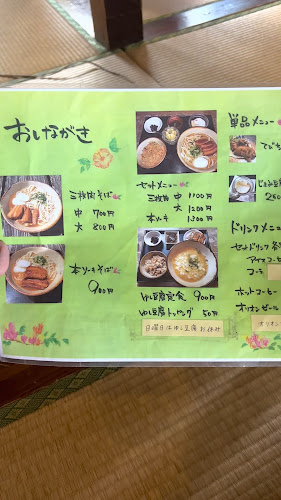 おしながき
三枚肉そば
中 700円
大 800円
本ソーキそば
900円
セットメニュー
三枚肉 中 1100円
大 1200円
本ソーキ 1300円
ゆし豆腐定食 900円
ゆし豆腐トッピング 50円
日曜日はゆし豆腐お休み
単品メニュー
てびち
じーまみ豆腐
250
ドリンクメニュー
セットドリンク
アイスコーヒー
コーラ
ホットコーヒー
オリオンビール